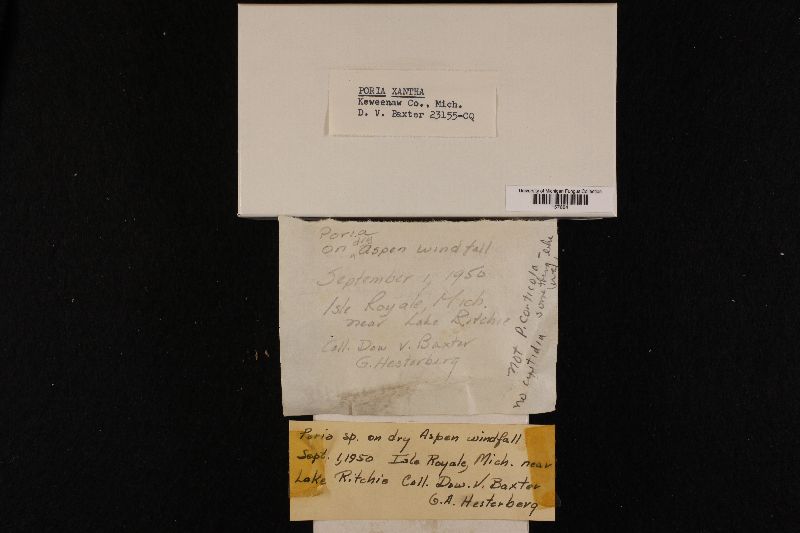 PORIA XANTHA
Keweenaw Co., Mich.
D. V. Baxter 23155-CQ
University of Michigan Fungus Collection
Poria
on dry Aspen windfall
September 1, 1950
Isle Royale, Mich.
near Lake Ritchie
Coll. Dow V. Baxter
G. Hesterberg
not P. corticola -
no cystidia something else
Poria sp. on dry Aspen windfall
Sept. 1, 1950 Isle Royale, Mich. near
Lake Ritchie Coll. Dow. V. Baxter
G.A. Hesterberg